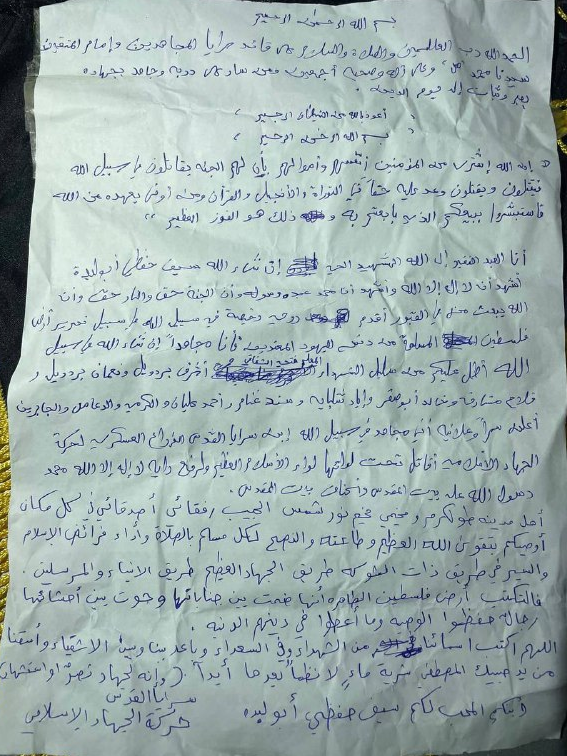 بسم الله الرحمن الرحيم
الحمد لله رب العالمين والصلاة والسلام على قائد سرايا المجاهدين وإمام المتقين
سيدنا محمد "ص" وعلى آله وصحبه أجمعين ومن سار على دربه وجاهد بجهاده
إلى يوم الدين.
أعوذ بالله من الشيطان الرجيم
بسم الله الرحمن الرحيم
إن الله إشترى من المؤمنين أنفسهم وأموالهم بأن لهم الجنة يقاتلون في سبيل الله
فيقتلون ويقتلون وعد عليه حقا في التوراة والأنجيل والقرآن ومن أوفى بعهده من الله
فاستبشروا ببيعكم الذي بايعتم به و ذلك هو الفوز العظيم "
أنا العبد الفقير إلى الله الشهيد الحي إن شاء الله سيف حفظي أبولبدة
أشهد أن لا إله إلا الله وأشهد أن محمد عبده ورسوله وأن الجنة حق والنار حق وأن
الله يبعث من في القبور أقدم روحي رخيصة في سبيل الله في سبيل تحرير أرض
فلسطين المسلمة من دنس اليهود المغتصبين فأنا مجاهداً إن شاء الله في سبيل
الله أطل عليكم من سلسال الشهداء المعلم فتحي الشقاقي أشرف بردويل ونعمان بردويل و
فلاح مشارقة وخالد أبوصقر وإياد وسند غنام و أحمد عليان والكرمي والدعامل والجابرين
أعلنه سراً وعلانية أنني مجاهد في سبيل الله إبن سرايا القدس الذراع العسكري لحركة
الجهاد الأسلامي أقاتل تحت لوائها لواء الأسلام العظيم ولرفع راية لا إله إلا الله محمد
رسول الله على بيت المقدس وأكناف بيت المقدس.
أهل مدينة طولكرم و مخيم نور شمس الحبيب رفقائي أصدقائي في كل مكان
أوصيكم بتقوى الله العظيم وطاعته والنصح لكل مسلم بالصلاة وأداء فرائض الإسلام
والسير في طريق ذات الشوكة طريق الجهاد العظيم طريق الانبياء والمرسلين.
فالتكتب أرض فلسطين الطاهرة أنها ضمت بين جنباتها وحوت بين أحشائها
رجالاً حفظوا الوصية وما أعطوا في دينهم الدنية.
اللهم اكتب أسمائنا من الشهداء وفي السعداء وباعد بيننا وبين الاشقياء وأسقنا
من يد حبيبك المصطفى شربة ماء لا نظمأ بعدها أبداً. (وإنه لجهاد نصر أو استشهاد)
سرايا القدس
إبنكم المحب لكم سيف حفظي أبو لبده
حركة الجهاد الإسلامي